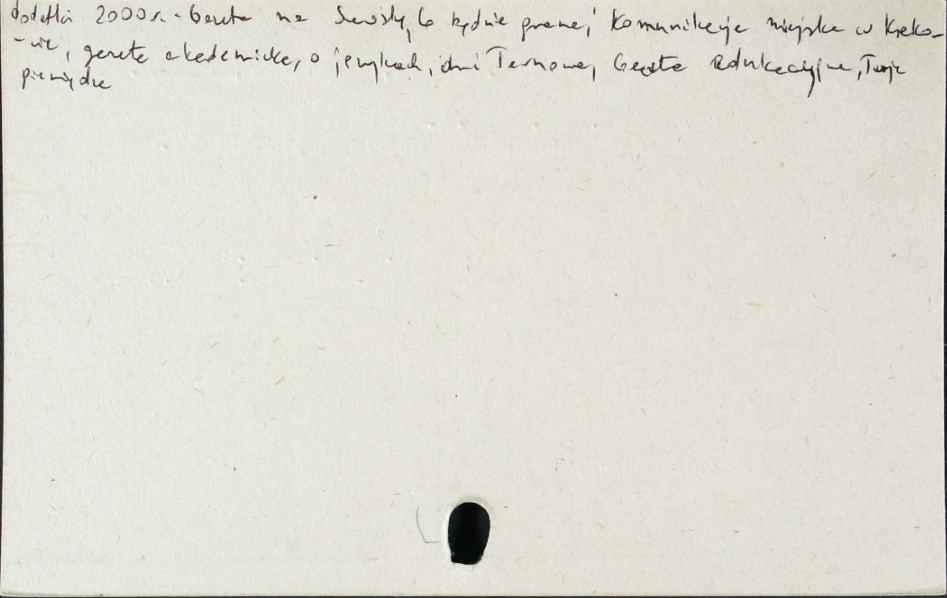 dodatki 2000 r. - Gazeta na Święta, Co będzie grane, Komunikacja miejska w Krako-
-wie, gazeta akademicka, o językach, dni Tarnowa, Gazeta Edukacyjna, Twoje
pieniądze